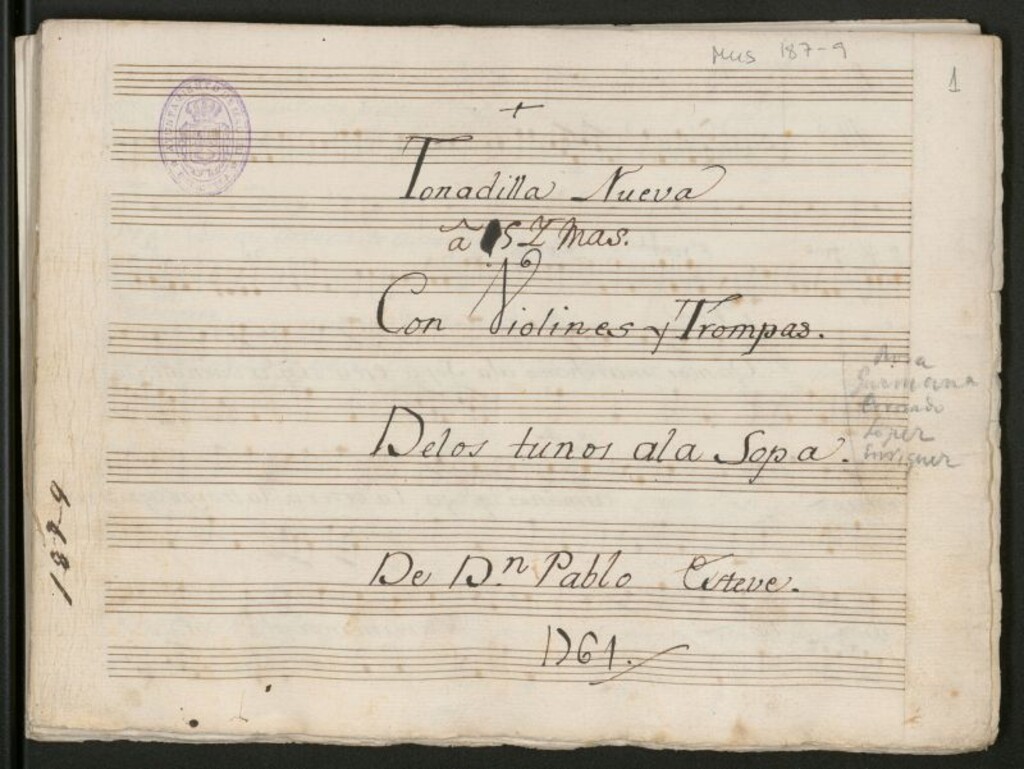 Mus 187-9
1
+
Tonadilla Nueva
â 5 Y mas.
Con Violines y Trompas.
Delos tunos ala Sopa.
Guzmana
Coronado
Lopez
Enriquez
De D.n Pablo Esteve.
1761.
187-9